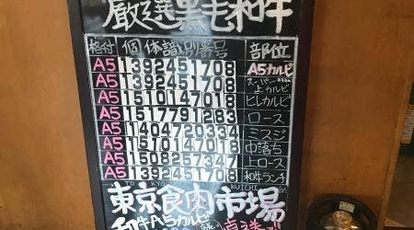 厳選黒毛和牛
格付 個体識別番号 部位
A5 1392451708 A5カルビ
A5 1392451708 上カルビ
A5 1510147018 ヒレカルビ
A5 1517791283 ロース
A5 1404720334 ミスジ
A5 1510147018 中落ち
A5 1508257347 上ロース
A5 1392451708 和牛ランチ
東京食肉市場
和牛A5カルビ